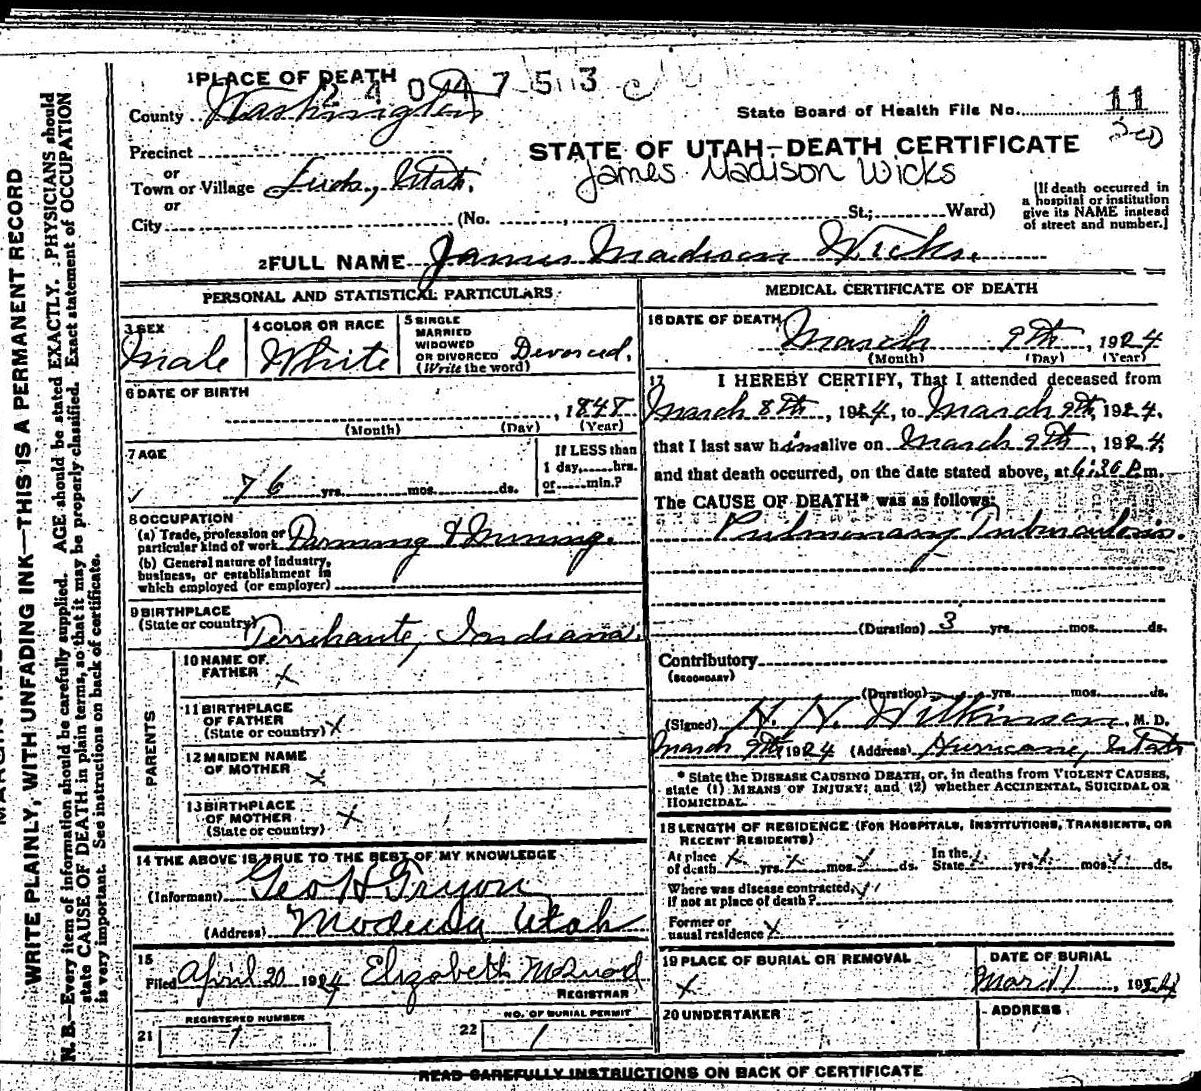 1 PLACE OF DEATH
2404753
County Washington
State Board of Health File No. 11
Precinct
STATE OF UTAH—DEATH CERTIFICATE
James Madison Wicks
or
Town or Village Utah.
or
City (No. , St.; Ward)
[If death occurred in
a hospital or institution
give its NAME instead
of street and number.]
2 FULL NAME James Madison Wicks.
PERSONAL AND STATISTICAL PARTICULARS
3 SEX
Male
4 COLOR OR RACE
White
5 SINGLE
MARRIED
WIDOWED
OR DIVORCED
(Write the word)
Devorced.
6 DATE OF BIRTH
, 1848
(Month) (Day) (Year)
7 AGE
76 yrs. mos. ds.
If LESS than
1 day, hrs.
or min.?
8 OCCUPATION
(a) Trade, profession or
particular kind of work Farming & Mining.
(b) General nature of industry,
business, or establishment in
which employed (or employer)
9 BIRTHPLACE
(State or country) Terrihaute, Indiana.
PARENTS
10 NAME OF
FATHER x
11 BIRTHPLACE
OF FATHER
(State or country) x
12 MAIDEN NAME
OF MOTHER x
13 BIRTHPLACE
OF MOTHER
(State or country) x
14 THE ABOVE IS TRUE TO THE BEST OF MY KNOWLEDGE
(Informant) Geo H Gryon
(Address) Modena Utah
15
Filed April 20 1924 Elizabeth McQuaid
REGISTRAR
21 REGISTERED NUMBER
1
22 NO. OF BURIAL PERMIT
1
MEDICAL CERTIFICATE OF DEATH
16 DATE OF DEATH
March 9th, 1924
(Month) (Day) (Year)
17 I HEREBY CERTIFY, That I attended deceased from
March 8th, 1924, to March 9th, 1924,
that I last saw him alive on March 9th, 1924,
and that death occurred, on the date stated above, at 6:30 P.m.
The CAUSE OF DEATH* was as follows:
Pulmonary Tuberculosis.
(Duration) 3 yrs. mos. ds.
Contributory
(SECONDARY)
(Duration) yrs. mos. ds.
(Signed) Wilkinson, M. D.
March 9th, 1924 (Address) Hurricane, Utah
* State the DISEASE CAUSING DEATH, or, in deaths from VIOLENT CAUSES,
state (1) MEANS OF INJURY; and (2) whether ACCIDENTAL, SUICIDAL OR
HOMICIDAL.
18 LENGTH OF RESIDENCE (FOR HOSPITALS, INSTITUTIONS, TRANSIENTS, OR
RECENT RESIDENTS)
At place
of death x yrs. x mos. x ds.
In the
State x yrs. x mos. x ds.
Where was disease contracted,
if not at place of death?
Former or
usual residence x
19 PLACE OF BURIAL OR REMOVAL
x
DATE OF BURIAL
Mar 11, 1924
20 UNDERTAKER
ADDRESS
READ CAREFULLY INSTRUCTIONS ON BACK OF CERTIFICATE
WRITE PLAINLY, WITH UNFADING INK—THIS IS A PERMANENT RECORD
N. B.—Every item of information should be carefully supplied. AGE should be stated EXACTLY. PHYSICIANS should
state CAUSE OF DEATH in plain terms, so that it may be properly classified. Exact statement of OCCUPATION
is very important. See instructions on back of certificate.